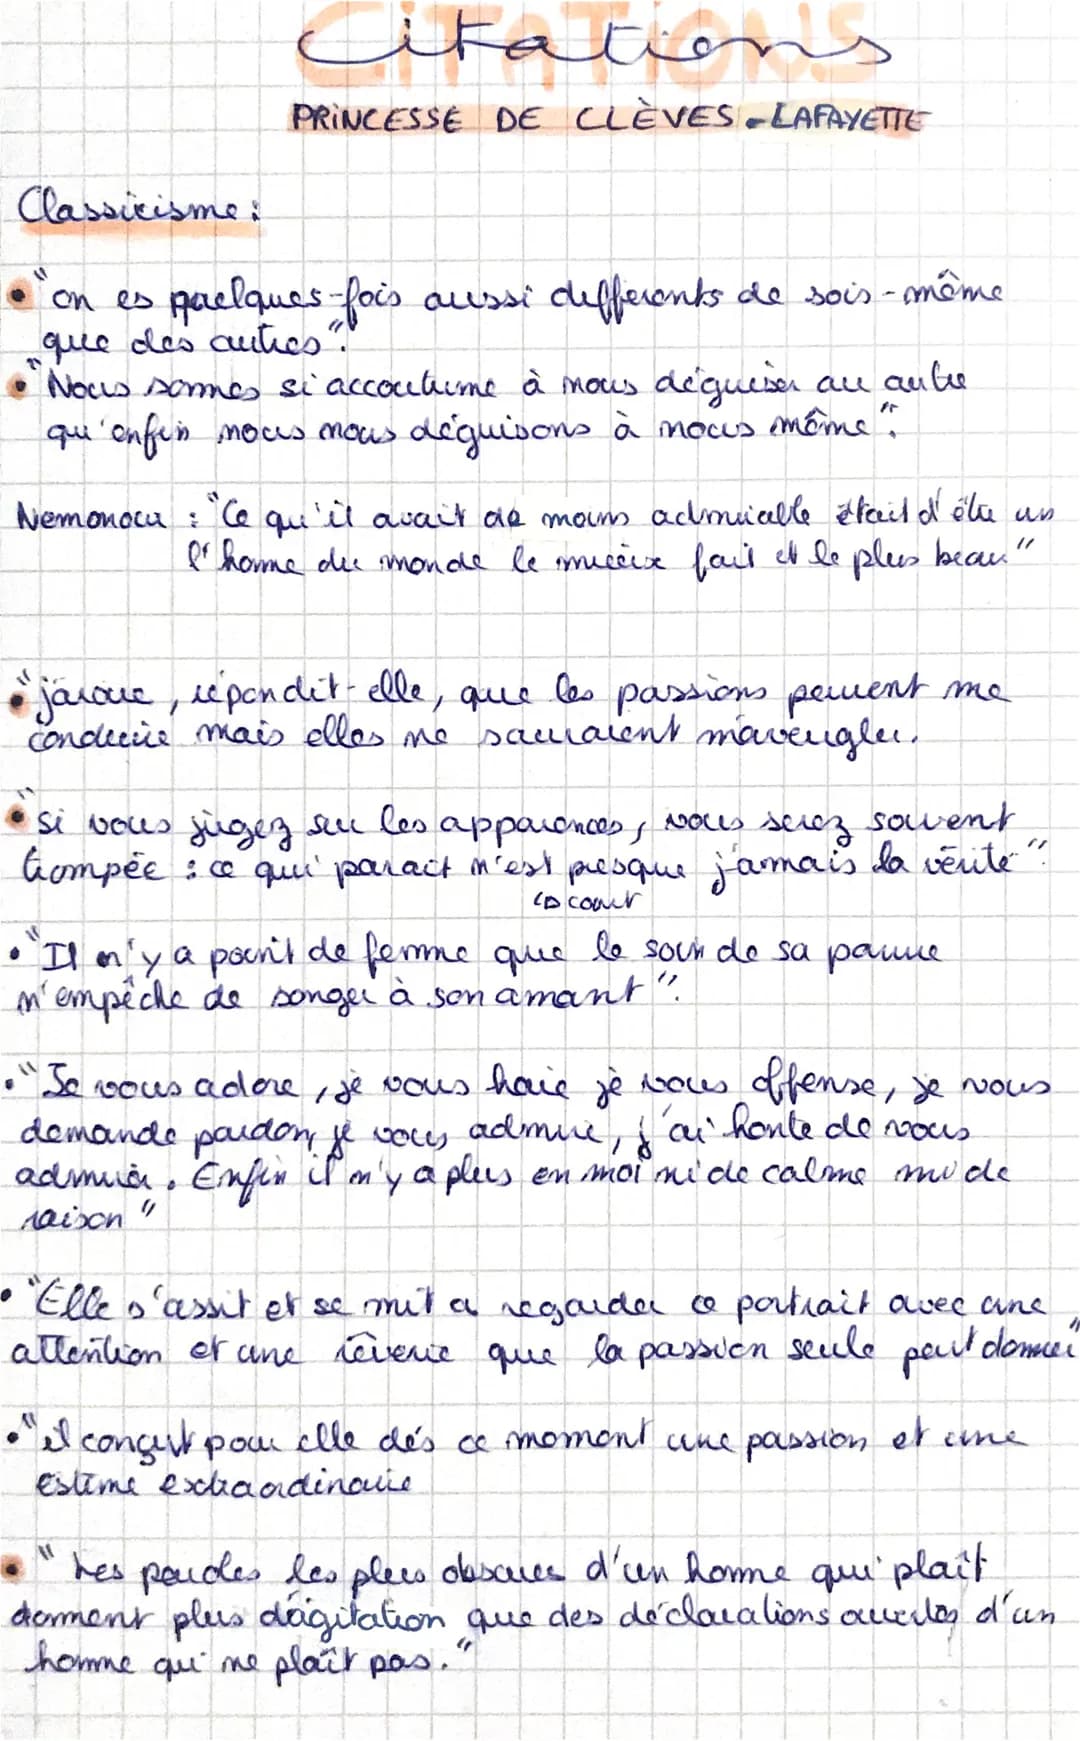 CITATIONS
Citations
PRINCESSE DE CLÈVES - LAFAYETTE
Classicisme :
• "on es quelques-fois aussi differents de sois-même
que des autres".
• "Nous sommes si accoutumé à nous déguiser au autre
qu'enfin nous nous déguisons à nous même".
: "Ce qu'il avait de moins admirable était d'être un
l'homme du monde le mieux fait et le plus beau"
• "j'avoue, répondit-elle, que les passions peuvent me
conduire mais elles ne sauraient m'aveugler.
• "si vous jugez sur les apparences, vous serez souvent
trompée : ce qui parait n'est presque jamais la vérité".
↳ cour
• "Il n'y a point de femme que le soin de sa parure
n'empêche de songer à son amant".
• "Je vous adore, je vous haie je vous offense, je vous
demande pardon, je vous admire, j'ai honte de vous
admirer. Enfin il n'y a plus en moi ni de calme ni de
raison"
• "Elle s'assit et se mit a regarder ce portrait avec une
attention et une rêverie que la passion seule peut donner"
• "il conçut pour elle dés ce moment une passion et une
estime extraordinaire
• "Les paroles les plus obscures d'un homme qui plaît
donnent plus d'agitation que des déclarations ouvertes d'un
homme qui ne plaît pas."